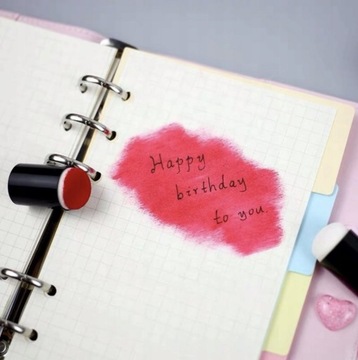 Happy
birthday
to you.